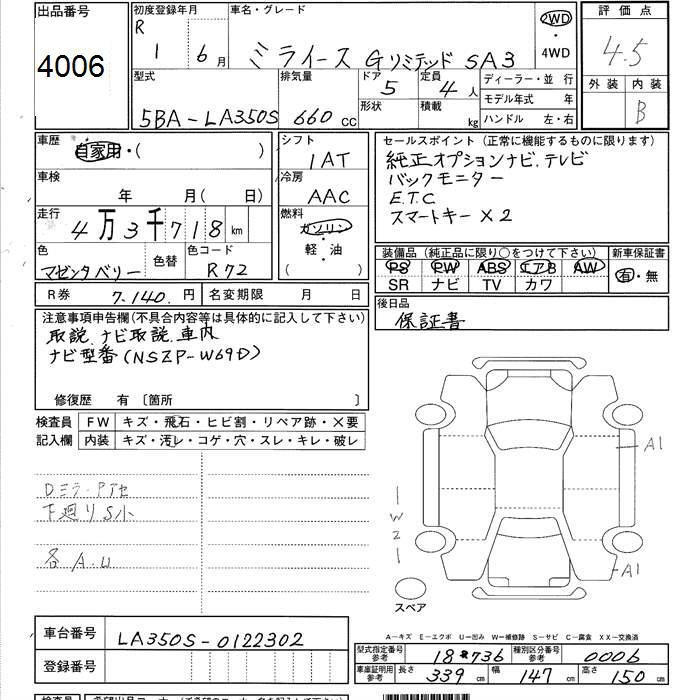 出品番号 初度登録年月 車名・グレード 2WD 評価点
4006 R 1 6月 ミライース Gリミテッド SA3 ・ 4WD 4.5
型式 排気量 ドア 定員 ディーラー・並 行 外装 内装
5BA-LA350S 660 cc 5 4 人 モデル年式 年 B
形状 積載 kg ハンドル 左・右
車歴 自家用・( ) シフト 1AT セールスポイント (正常に機能するものに限ります)
純正オプションナビ.テレビ
車検 年 月( 日) 冷房 AAC バックモニター
E.T.C
走行 4万3千718km 燃料 ガソリン スマートキー×2
軽・油
( )
色 マゼンタベリー 色替 色コード R72
装備品 (純正品に限り○をつけて下さい) 新車保証書
PS PW ABS エアB AW 有・無
SR ナビ TV カワ
R券 7.140.円 名変期限 月 日
後日品 保証書
注意事項申告欄(不具合内容等は具体的に記入して下さい)
取説.ナビ取説.車内
ナビ型番(NSZP-W69D)
修復歴 有 〔箇所 〕
検査員 記入欄 FW キズ・飛石・ヒビ割・リペア跡・×要
内装 キズ・汚レ・コゲ・穴・スレ・キレ・破レ
A1
Dミラ-Pアセ
下廻りS小
W21
各A.U
A1
スペア
A-キズ E-エクボ U-凹み W-補修跡 S-サビ C-腐食 XX-交換済
車台番号 LA350S-0122302
型式指定番号 参考 18736 種別区分番号 参考 0006
登録番号
車庫証明用 参考 長さ 339 cm 幅 147 cm 高さ 150 cm